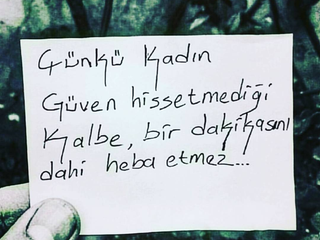 Çünkü Kadın
Güven hissetmediği
Kalbe, bir dakikasını
dahi heba etmez...